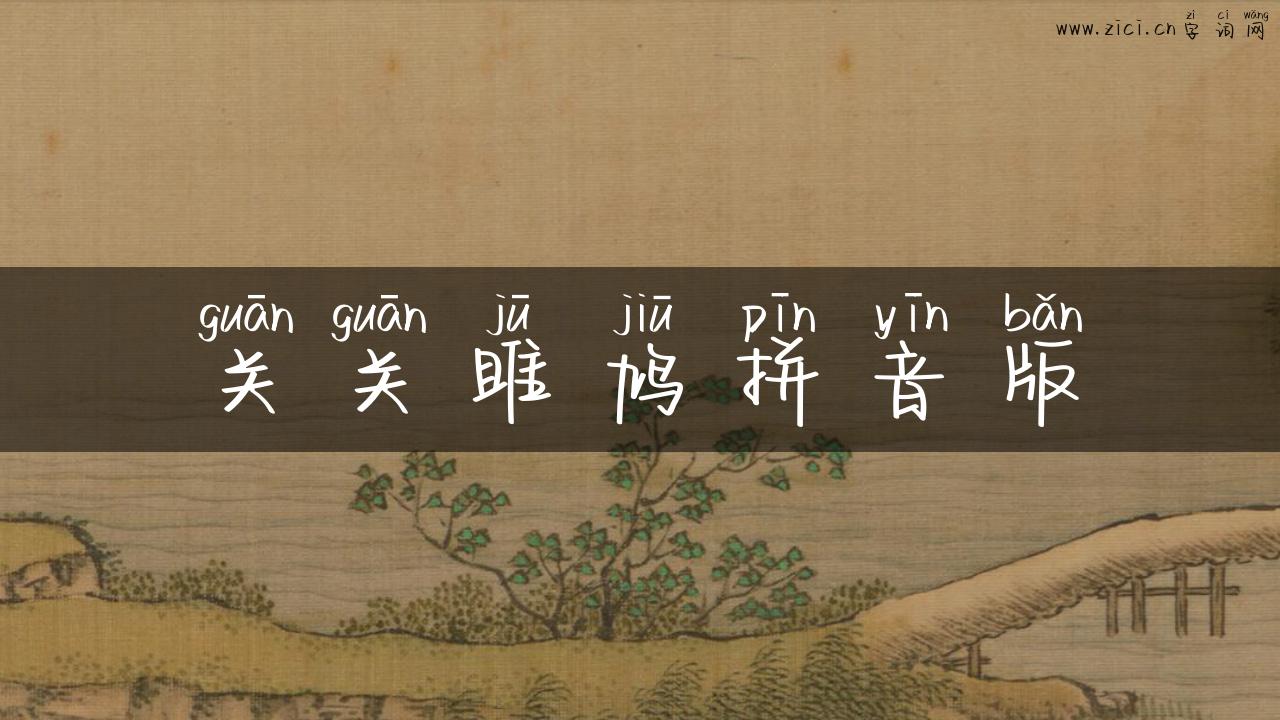 zì cí wǎng
www.zici.cn 字 词 网
guān guān jū jiū pīn yīn bǎn
关 关 雎 鸠 拼 音 版